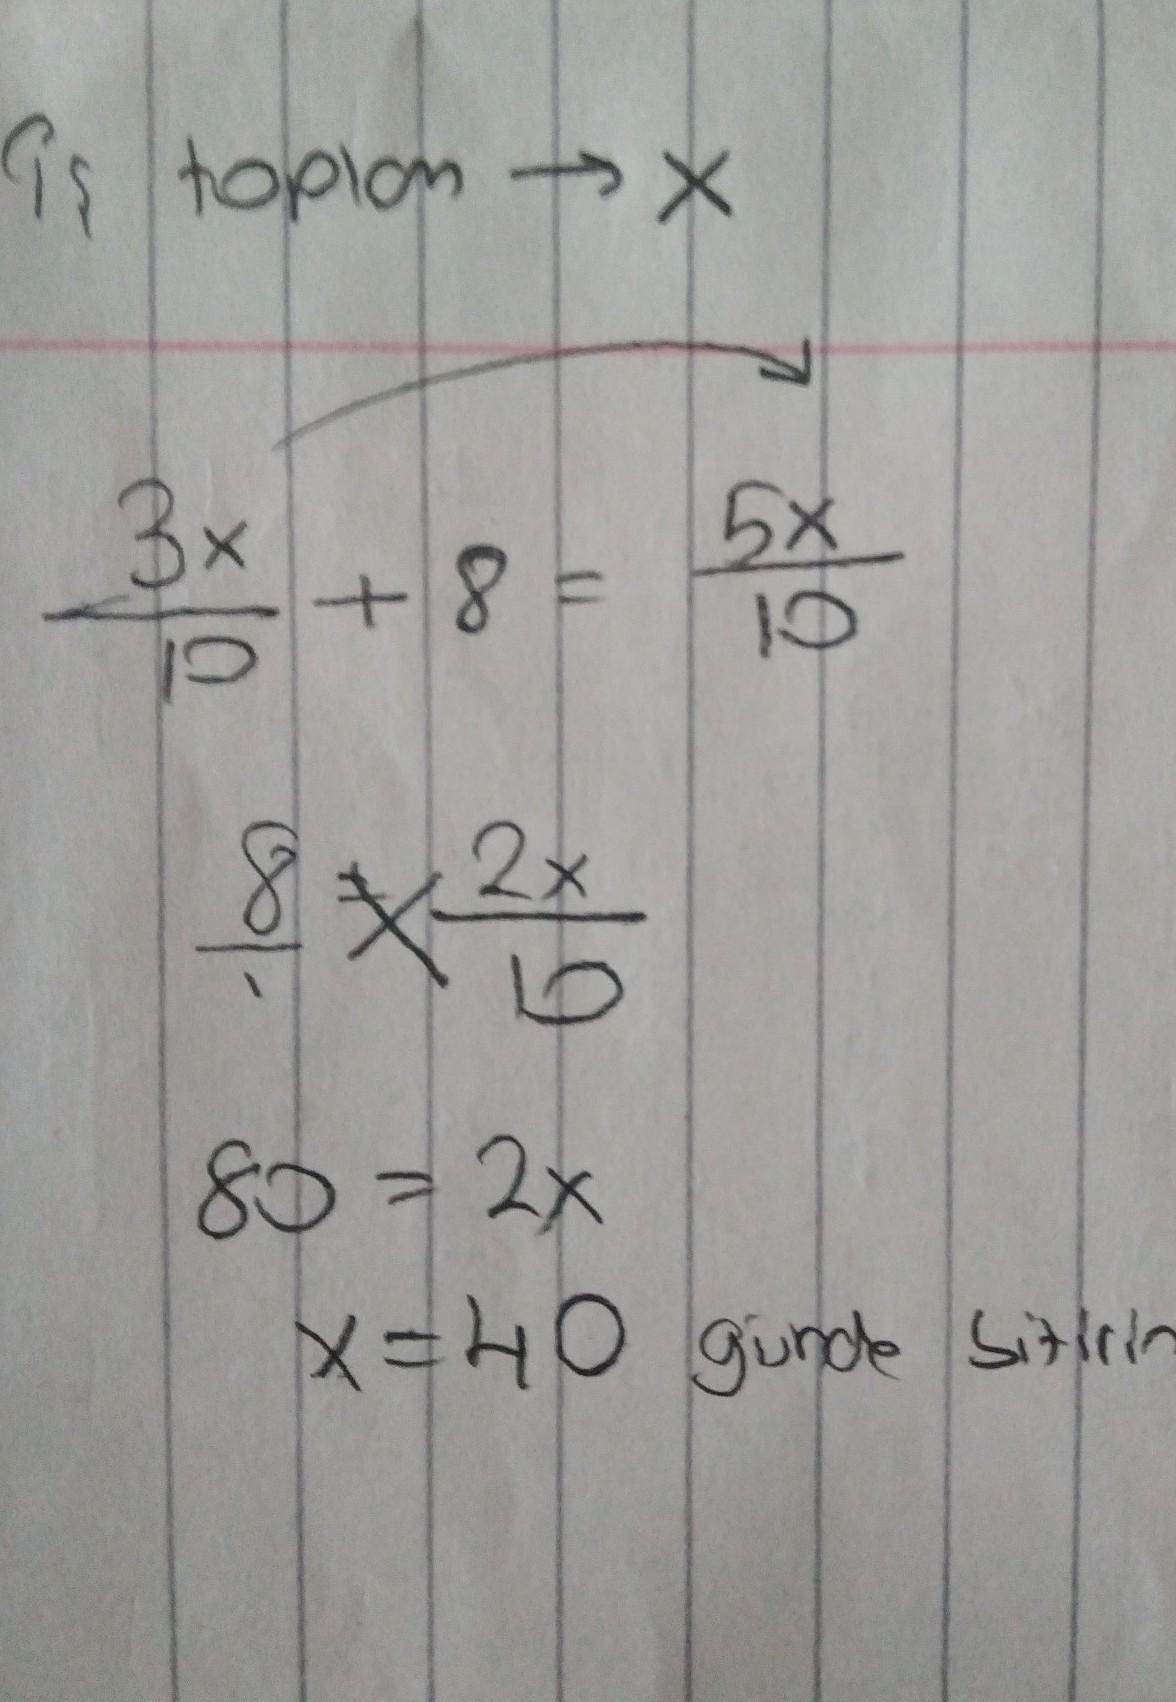 İş toplam → x
3x/10 + 8 = 5x/10
8/1 = 2x/10
80 = 2x
x = 40 günde bitirir